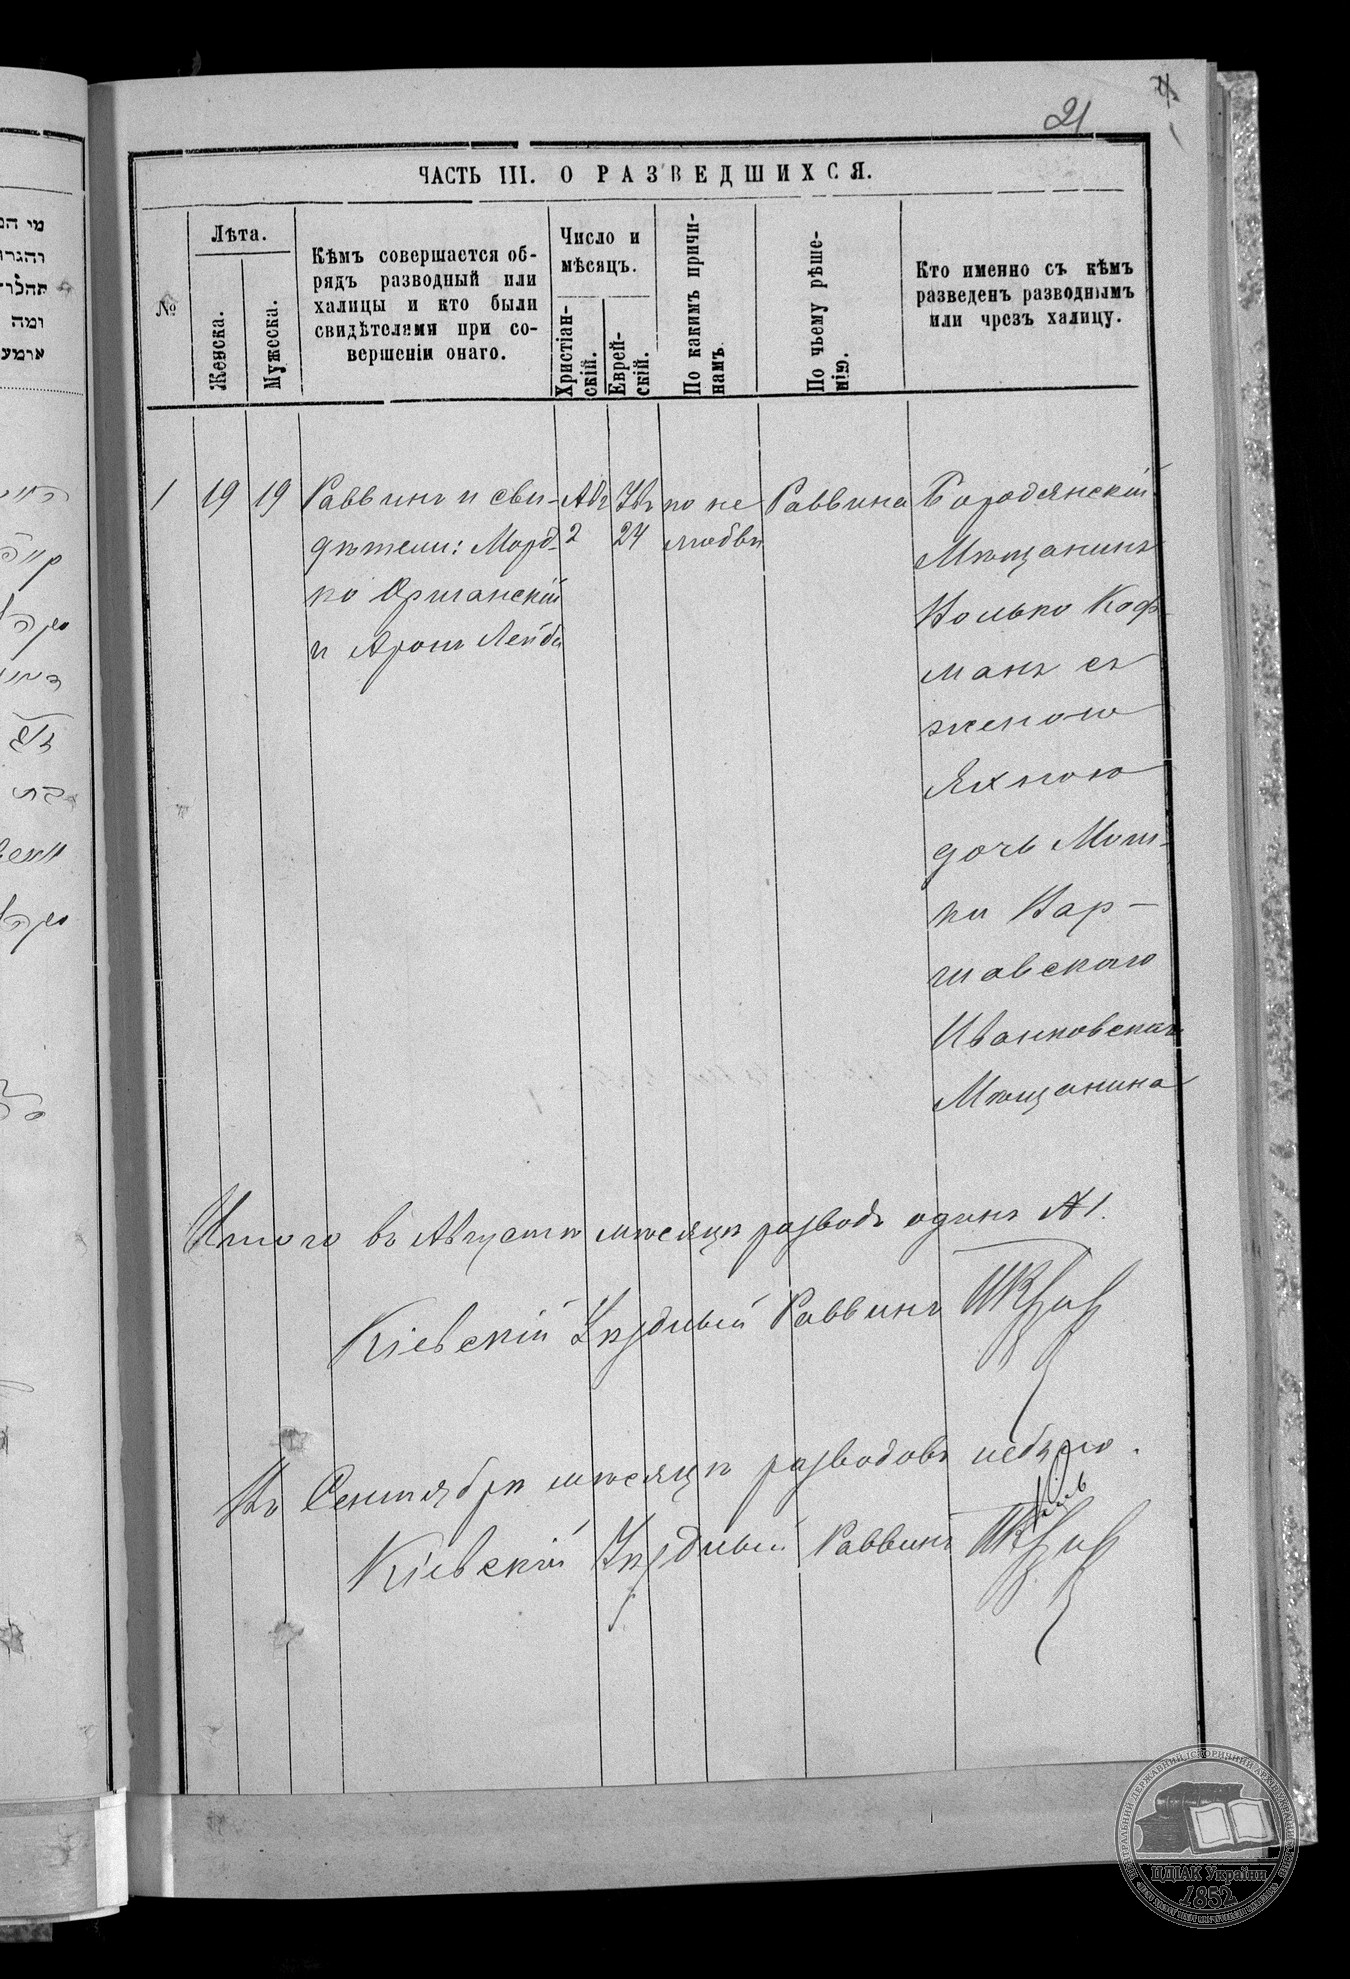 21
ЧАСТЬ III. О РАЗВЕДШИХСЯ.
№
Лѣта.
Женска.
Мужеска.
Кѣмъ совершается об-
рядъ разводный или
халицы и кто были
свидѣтелями при со-
вершеніи онаго.
Число и
мѣсяцъ.
Христіан-
скій.
Еврей-
скій.
По какимъ причи-
намъ.
По чьему рѣше-
нію.
Кто именно съ кѣмъ
разведенъ разводнымъ
или чрезъ халицу.
1
19
19
Раввинъ и сви-
дѣтели: Морд-
ко Оршанскій
и Аронъ Лейба
Авг
2
24
по не
любви
Раввина
Бородянскій
Мѣщанинъ
Волько Коф-
манъ съ
женою
Яхною
дочь Мош-
ки Вар-
шавскаго
Иванковскаго
Мѣщанина
Итого въ Августѣ мѣсяцѣ разводъ одинъ № 1.
Кіевскій Уѣздный Раввинъ
Въ Сентябрѣ мѣсяцѣ разводовъ небыло.
Кіевскій Уѣздный Раввинъ
מי
ומה
ЦДІАК України
1852